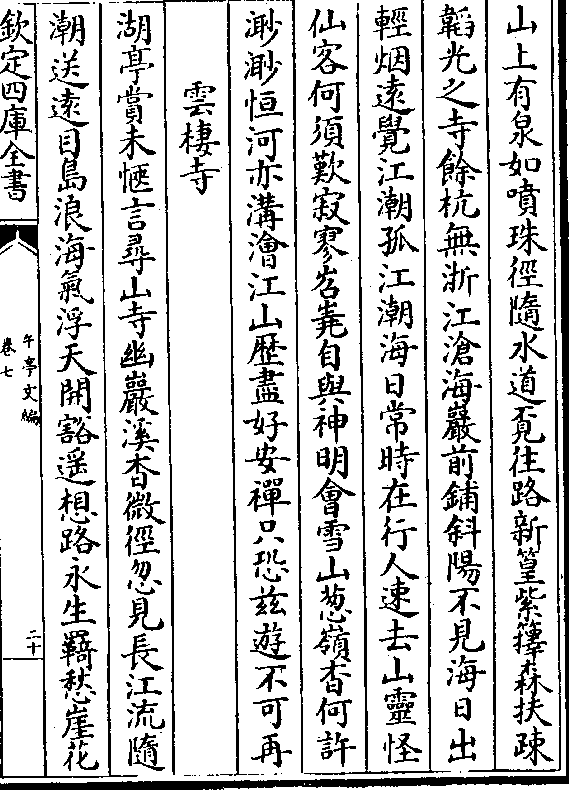 山上有泉如噴珠徑隨水道覔往路新篁紫籜森扶疎
韜光之寺餘杭無浙江滄海巖前鋪斜陽不見海日出
輕烟遠覺江潮孤江潮海日常時在行人速去山靈怪
仙客何須歎寂寥岧嶤自與神明會雪山葱嶺杳何許
渺渺恒河亦溝澮江山歷盡好安禪只恐兹遊不可再
雲棲寺
湖亭賞未愜言尋山寺幽巖溪杳微徑忽見長江流隨
潮送遠目島浪海氣浮天開豁遥想路永生羇愁崖花
欽定四庫全書
午亭文編
卷七
二十